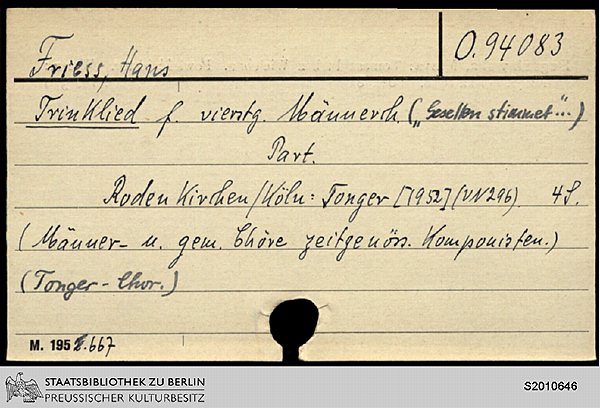 Friess, Hans
O.94083
Trinklied f. vierstg. Männerch. ("Gesellen stimmet"...)
Part.
Rodenkirchen/Köln: Tonger [1952] (VN 296). 4 S.
(Männer- u. gem. Chöre zeitgenöss. Komponisten.)
(Tonger-Chor.)
M. 1952.667
STAATSBIBLIOTHEK ZU BERLIN
PREUSSISCHER KULTURBESITZ
S2010646